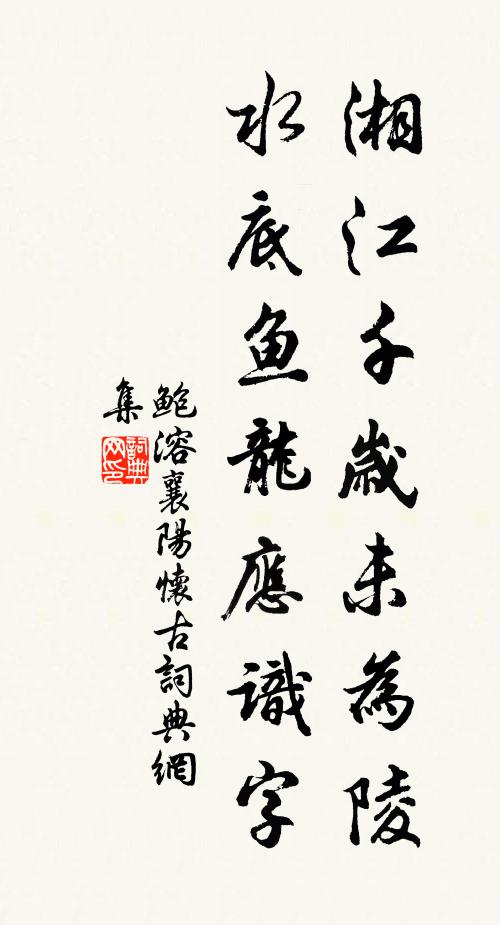 湘江千歲未為陵
水底魚龍應識字
鮑溶襄陽懷古詞典網
集
詞典
网印